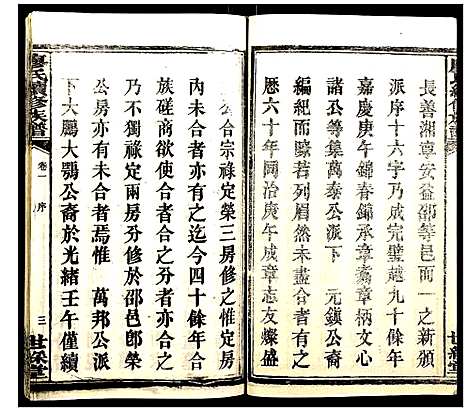 長善湘寧安益邵等邑而一之新頒
派序十六字乃成完璧越九十餘年
嘉慶庚午錦春錦承章燾章柄文心
古心等集萬泰公派下 元鎮公裔
編紀而尊若列眉然未盡合者有
歷六十年同治庚午成章志友燦盛
公合宗祿定榮三房修之惟定房
亦有未合者迄今四十餘年合
族磋商欲使合者合之分者亦合之
乃與一祿定兩房分修於邵邑郎榮
公房亦有未者焉惟 萬邦公派
下大鵬大鶚公裔於光緒壬午僅續
廖氏續修族譜
卷一 序
三
世綵堂
廖氏續修族譜
世綵堂